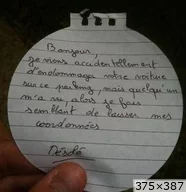 Bonjour,
je viens accidentellement
d'endommager votre voiture
sur ce parking, mais quelqu'un
m'a vu, alors je fais
semblant de laisser mes
coordonnées
Désolé